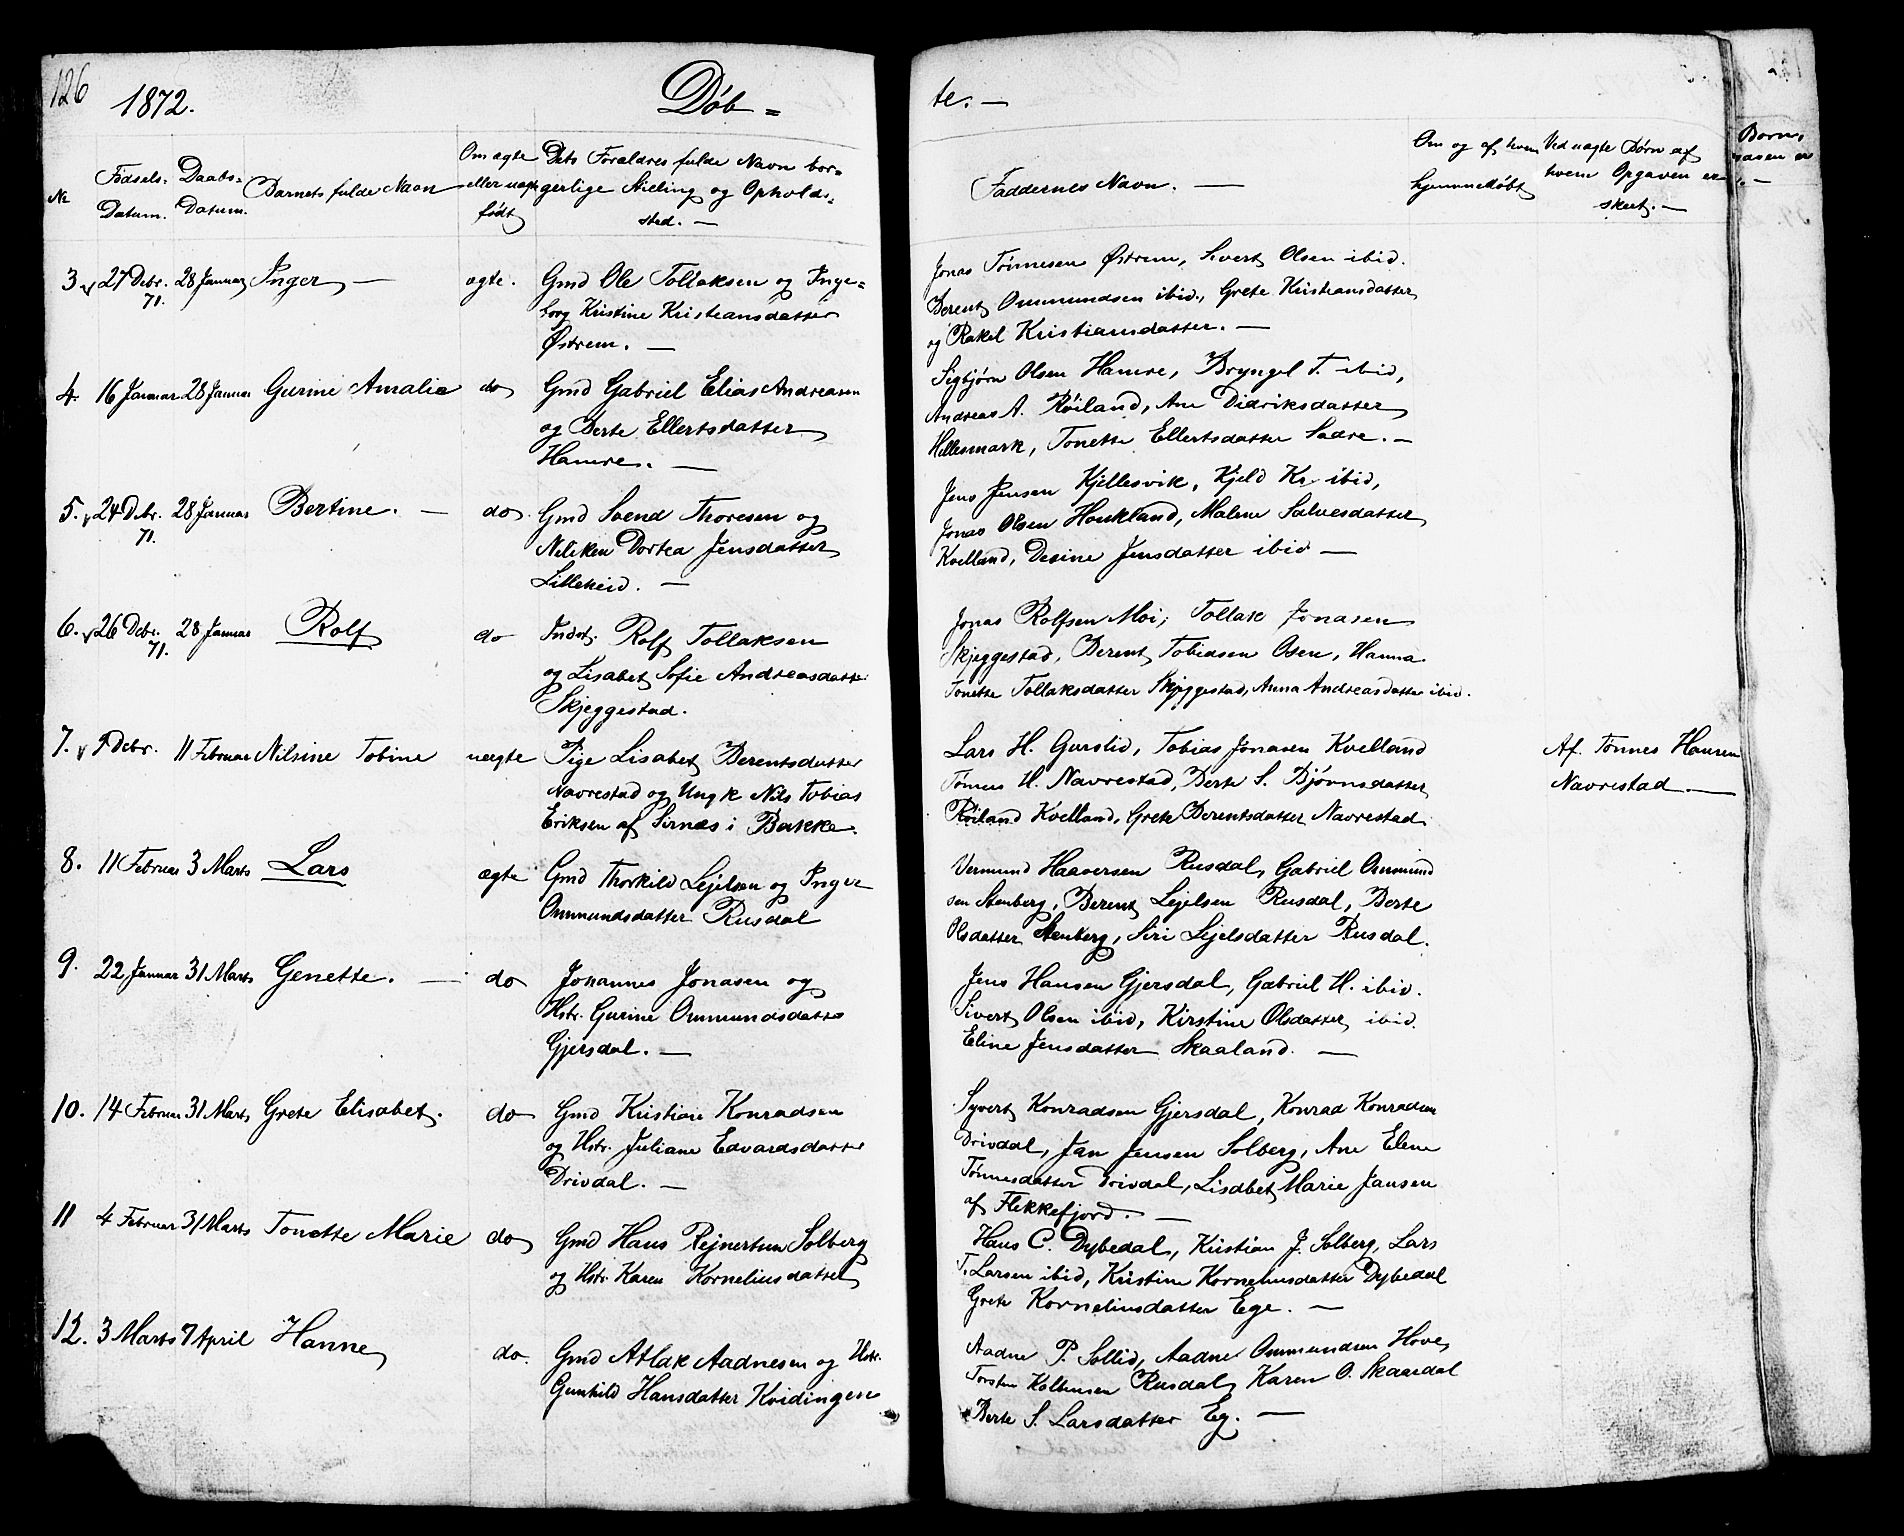 126
1872.
Døb =
te. —
No
Fødsels-
Datum.
Daabs-
Datum.
Barnets fulde Navn
Om ægte
eller uægte
født
Dets Forældres fulde Navn bor-
gerlige Stilling og Opholds-
sted. —
Faddernes Navn. —
Om og af hvem
hjemmedøbt
Ved uægte Børn af
hvem Opgaven er
skeet. —
3 27 Debr. 71. 28 Januar Inger — ægte.
Gmd Ole Tollaksen og Inge=
borg Kristine Kristiansdatter
Østrem. —
Jonas Tønnesen Østrem, Sivert Olsen ibid.
Berent Ommundsen ibid., Grete Kristiansdatter
og Rakel Kristiansdatter. —
4. 16 Januar 28 Januar Gurine Amalie do
Gmd Gabriel Elias Andreasen
og Berte Ellertsdatter
Hamre. —
Sigbjørn Olsen Hamre, Bryngel T. ibid,
Andreas A. Røiland, Ane Didriksdatter
Hellesmark, Tonette Ellertsdatter Sadre. —
5. 24 Debr. 71. 28 Januar Bertine. — do.
Gmd Svend Thoresen og
Neliken Dortea Jensdatter
Lilleheid. —
Jens Jensen Kjellesvik, Kjeld Kr. ibid,
Jonas Olsen Houkland, Malene Salvesdatter
Kvelland, Desine Jensdatter ibid —
6. 26 Debr. 71. 28 Januar Rolf do
Inds. Rolf Tollaksen
og Lisabet Sofie Andreasdatter
Skjeggestad.
Jonas Rolfsen Moi, Tollak Jonasen
Skjeggestad, Berent Tobiasen Osen, Hanna
Tonette Tollaksdatter Skjeggestad, Anna Andreasdatter ibid.
7. 9 Debr. 11 Februar Nilsine Tobine uægte
Pige Lisabet Berentsdatter
Navrestad og Ungk Nils Tobias
Eriksen af Sirnæs i Bakke.
Lars H. Gurslid, Tobias Jonasen Kvelland
Tønnes H. Navrestad, Berte S. Bjørnsdatter
Røiland Kvelland, Grete Berentsdatter Navrestad
Af. Tønnes Hansen
Navrestad —
8. 11 Februar 3 Marts Lars ægte
Gmd Thorkild Lejelsen og Inger
Ommundsdatter Rusdal
Vermund Haaversen Rusdal, Gabriel Ommund
sen Stenberg, Berent Lejelsen Rusdal, Berte
Olsdatter Stenberg, Siri Lejelsdatter Rusdal.
9. 22 Januar 31 Marts Genette. — do
Johannes Jonasen og
Hstr. Gurine Ommundsdatter
Gjersdal. —
Jens Hansen Gjersdal, Gabriel H. ibid.
Sivert Olsen ibid, Kirstine Olsdatter ibid.
Eline Jensdatter Skaaland. —
10. 14 Februar 31 Marts Grete Elisabet. do
Gmd Kristian Konradsen
og Hstr. Juliane Edvardsdatter
Drivdal. —
Syvert Konradsen Gjersdal, Konrad Konradsen
Drivdal, Jan Jensen Solberg, Ane Elene
Tønnesdatter Drivdal, Lisabet Marie Jansen
af Flekkefjord. —
11 4 Februar 31 Marts Tonette Marie do
Gmd Hans Rejnertsen Solberg
og Hstr. Karen Korneliusdatter
Hans C. Dybedal, Kristian J. Solberg, Lars
T. Larsen ibid, Kristine Korneliusdatter Dybedal
Grete Korneliusdatter Ege. —
12. 3 Marts 7 April Hanne do.
Gmd Atlak Aadnesen og Hstr.
Gunhild Hansdatter Kvidingen
Aadne P. Sollid, Aadne Ommundsen Hove,
Torsten Kolbensen Rusdal, Karen O. Skaardal
Berte S. Larsdatter Eg. —